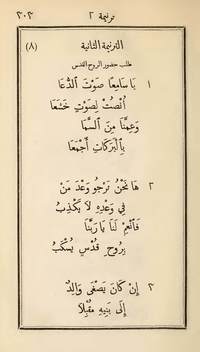 ترنيمة ٢
٣٠٣
الترنيمة الثانية
(٨)
طلب حضور الروح القدس
١ يَا سَامِعًا صَوْتَ ٱلدُّعَا
أُنْصُتْ لِصَوْتٍ خَشَعَا
وَعَمِّنَا مِنَ ٱلسَّمَا
بِٱلْبَرَكَاتِ أَجْمَعَا
٢ هَا نَحْنُ نَرْجُو وَعْدَ مَنْ
فِي وَعْدِهِ لَا يَكْذِبُ
فَٱنْعِمْ لَنَا يَا رَبَّنَا
بِرُوحِ قُدْسٍ يُسْكَبُ
٣ إِنْ كَانَ يَصْغَى وَالِدٌ
إِلَى بَنِيهِ مُقْبِلَا